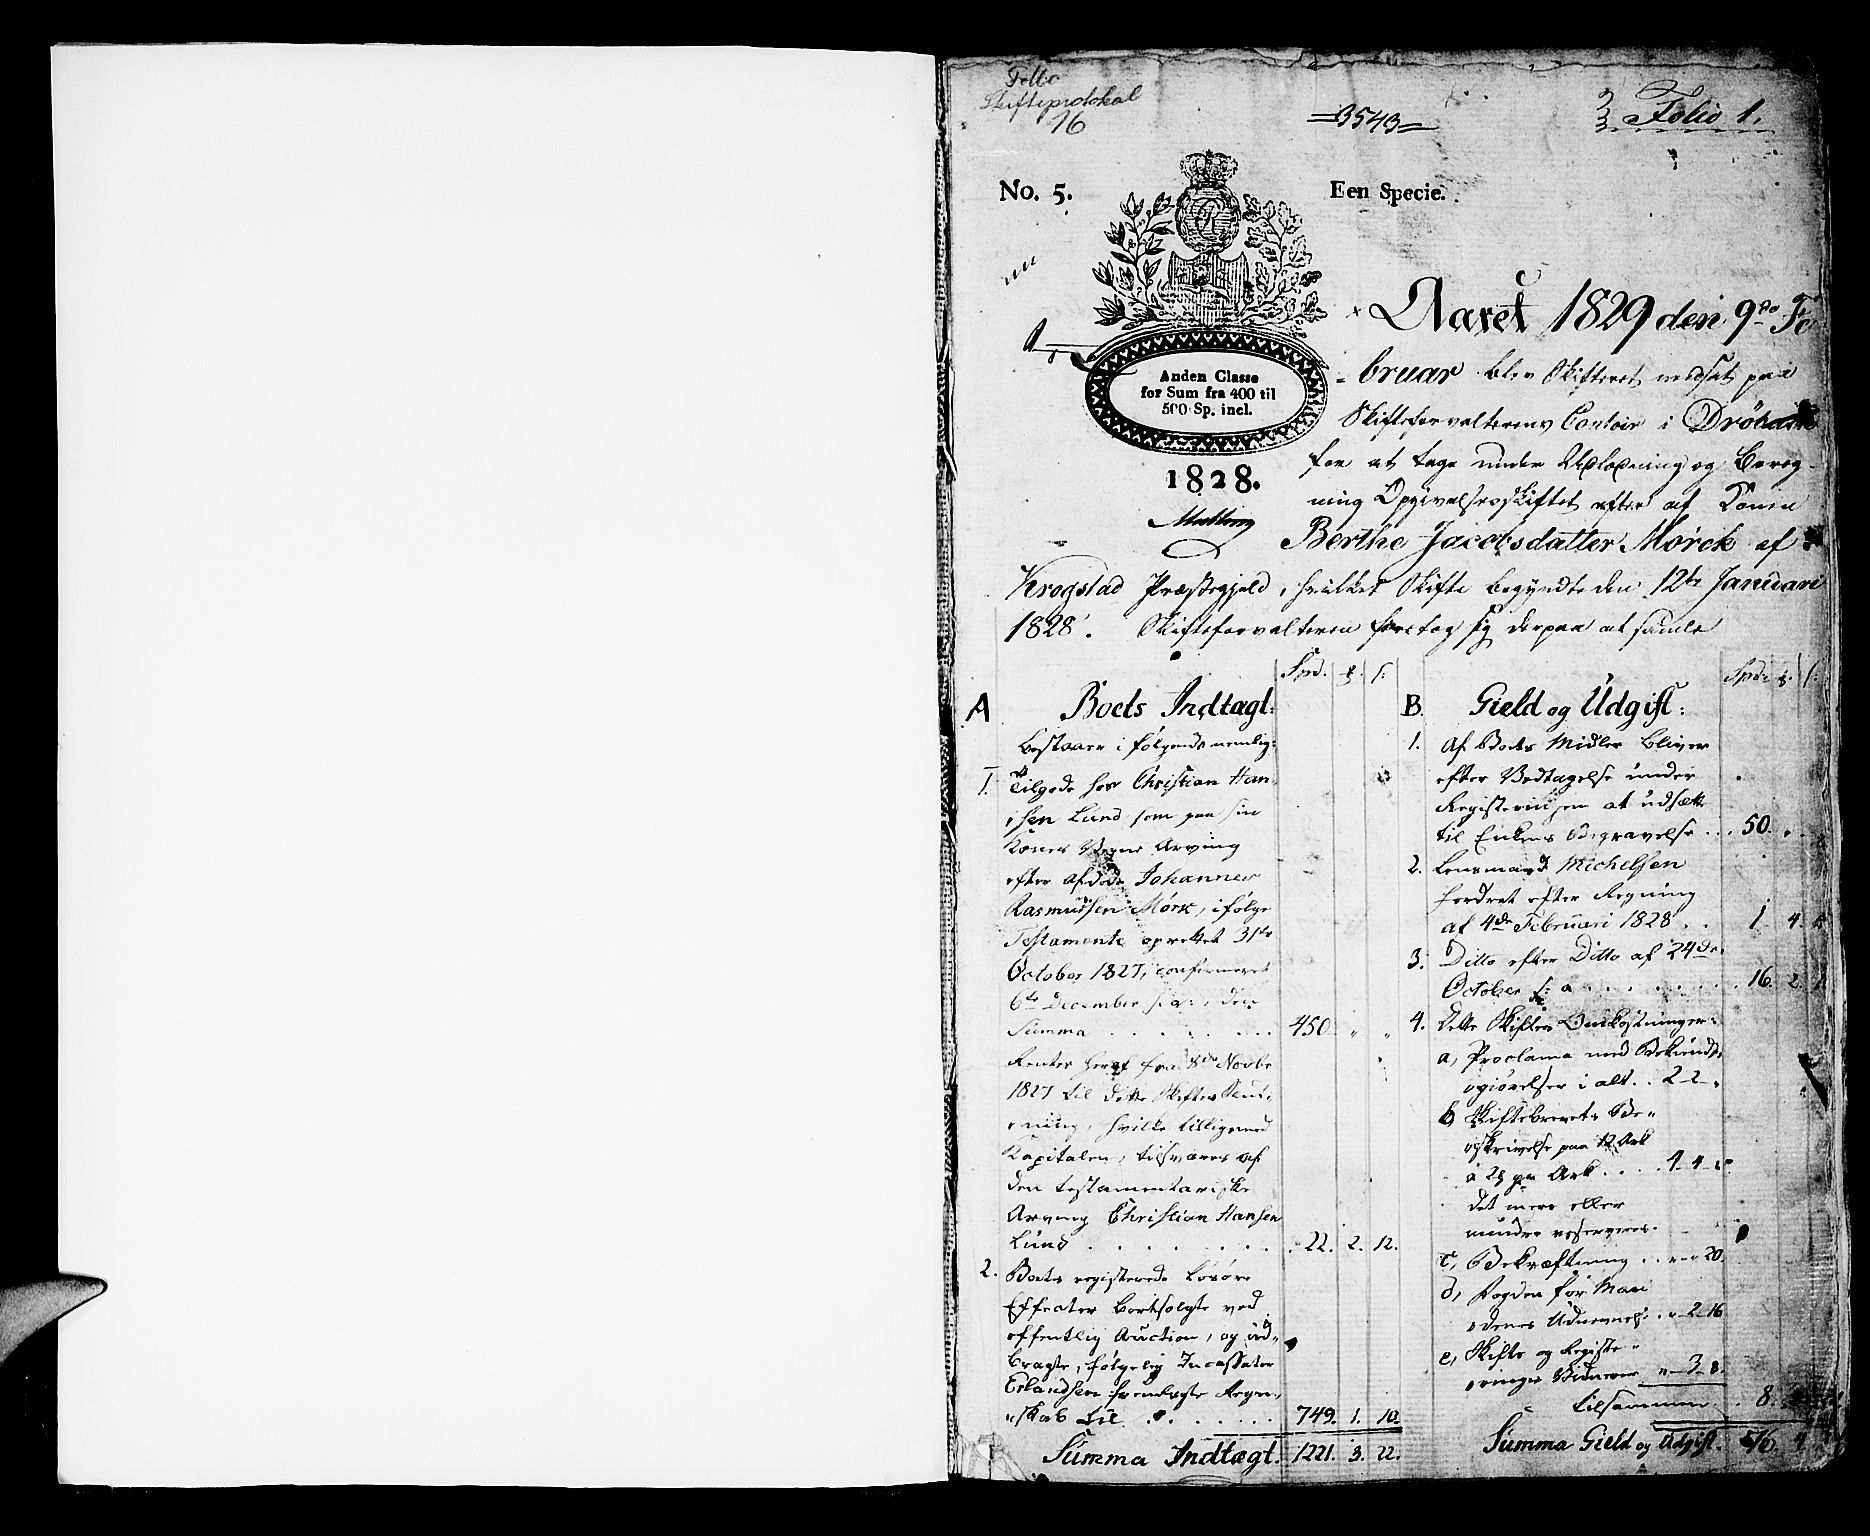 Follo
Skifteprotokol
16
=3543=
Folio 1.
No. 5.
Een Specie.
Anden Classe
for Sum fra 400 til
500 Sp. incl.
1828.
Aaret 1829 den 9de Fe
bruar blev Skifteret nedsat paa
Skifteforvalterens Contoir i Drøbak
for at tage under Opløsning og Bereg-
ning Opgivelsesskiftet efter af Konen
Berthe Jacobsdatter Mørck af
Krogstad Præstegjeld, hvilket Skifte begyndte den 12te Januari
1828. Skifteforvalteren foretog sig derpaa at samle
Spd. ß. s:
A Boets Indtægt:
bestaaer i følgende nemlig:
1. Tilgode hos Christian Han-
sen Lund som paa sin
Kones Vegne Arving
efter afdøde Johannes
Rasmussen Mørk, ifølge
Testamente oprettet 31te
October 1827, confirmeret
6te December s: a:, den
Summa . . . . 450. " "
Renter heraf fra 8de Novbr
1827 til dette Skiftes Slut-
ning, hvilke tilligemed
Kapitalen, tilsvares af
den testamentariske
Arving Christian Hansen
Lund . . . . . 22. 2. 12.
2. Boets registerede Løsøre
Effecter bortsolgte ved
offentlig Auction, og ud-
bragte, følgelig Incassator
Erlandsen fremlagte Regn-
skab til . . . . . 749. 1. 10.
Summa Indtægt. 1221. 3. 22.
Spd. ß. s:
B. Gield og Udgift:
1. Af Boets Midler bliver
efter Vedtagelse under
Registeringen at udsætte
til Enkens Begravelse . . . 50. " "
2. Lensmand Michelsen
fordret efter Regning
af 4de Februari 1828 . . 1. 4.
3. Ditto efter Ditto af 24de
October s: a . . . . . 16. 2.
4. Dette Skiftes Omkostninger:
a, Proclama med Bekiendt-
giørelser i alt . . 2 2 "
b, Skiftebrevets Be-
skrivelse paa 12 Ark
à 2 ß pr Ark . . . . 4 4 "
det mere eller
mindre reserveres.
c, Bekræftning . . " " 20.
d, Fogden for Mæn
denes Udnævnelse . " 2 16
e, Skifte og Registe-
rings Vidnerne " 3 8
tilsammen 8.
Summa Gield og Udgift. 76. 4